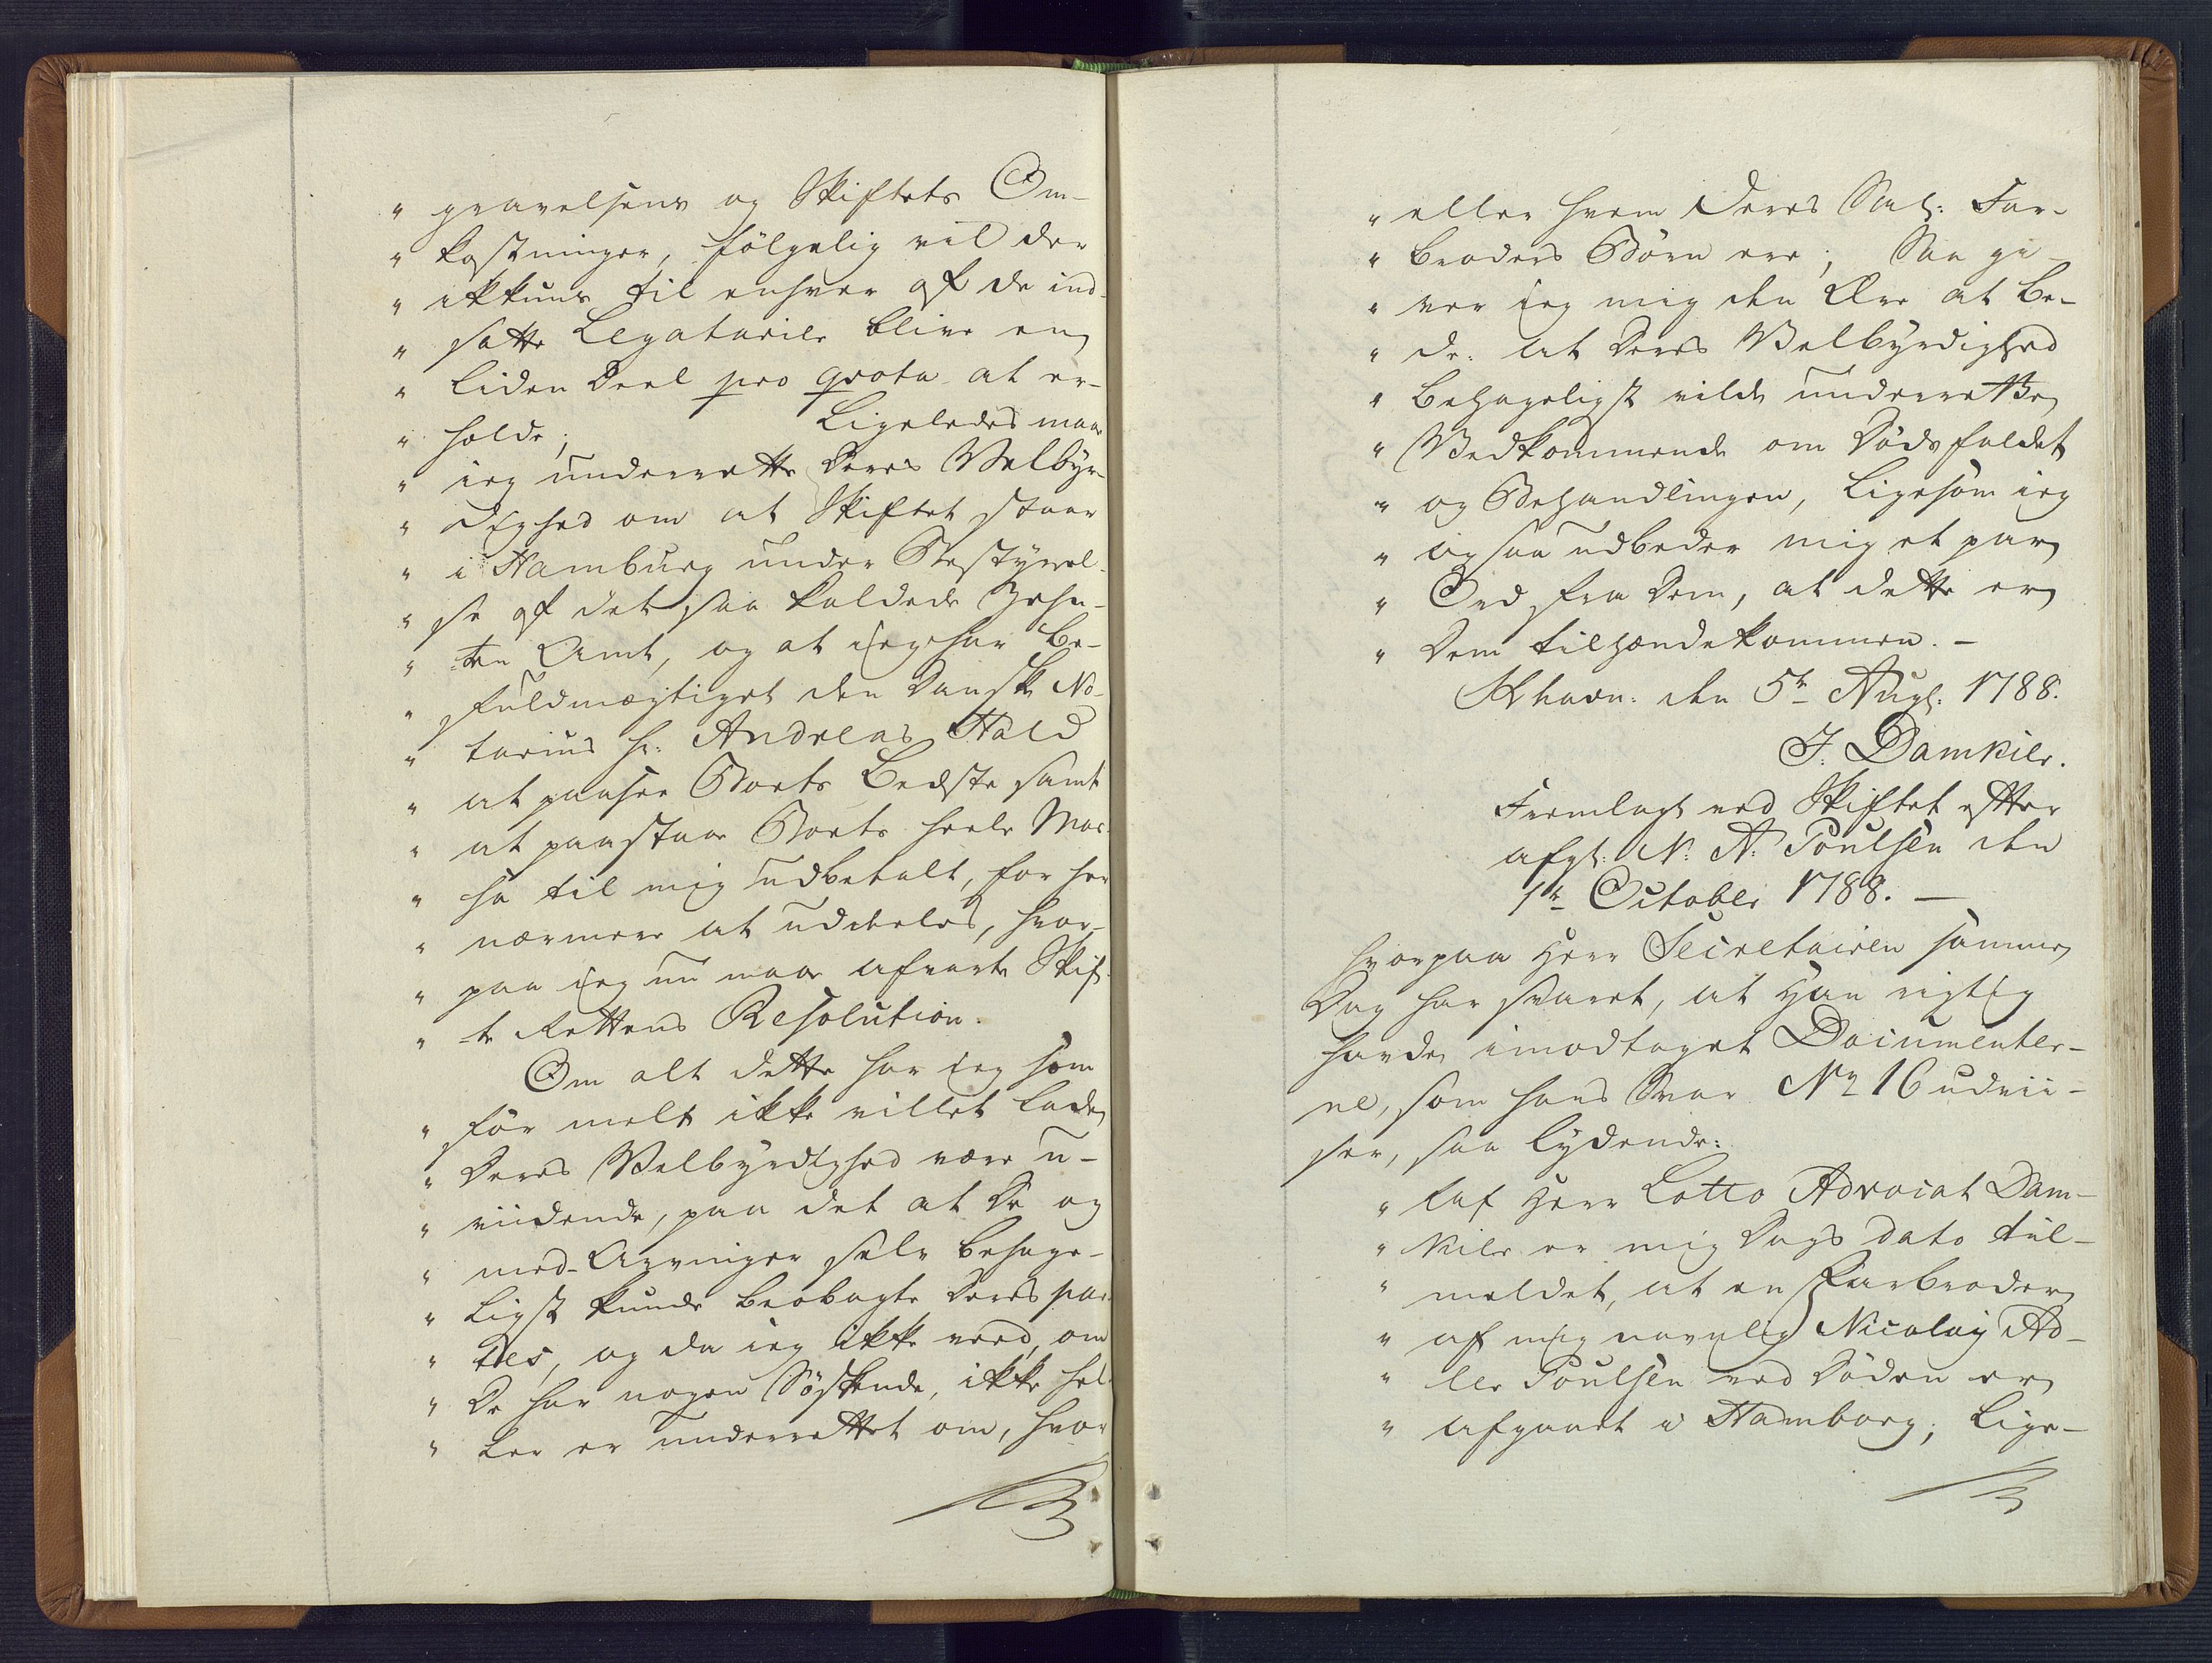 " gravelsens og Skiftets Om-
" kostninger, fölgelig vil der
" ikkuns til enhver af de ind-
" satte Legatarier blive en
" liden Deel pro qvota at er-
" holde; Ligeledes maae
" ieg underrette Deres Velbyr-
" dighed om at Skiftet staaer
" i Hamburg under Bestyrel-
" se af det saa kaldede Zehn-
" ten Amt, og at ieg har be-
" fuldmægtiget den Danske No-
" tarius Hr: Andreas Hald
" at paasee Boets Bedste samt
" at paastaae Boets heele Mas-
" sa til mig udbetalt, for her
" nærmere at uddeeles, hvor-
" paa ieg nu maae afvarte Skif-
" te Rettens Resolution.
Om alt dette har ieg som
" för meldt ikke villet lade
" Deres Velbyrdighed være u-
" viidende, paa det at De og
" med-Arvinger selv behage-
" ligst kunde beobagte Deres par-
" tes, og da ieg ikke veed, om
" De har nogen Söskende, ikke hel-
" ler er underrettet om, hvor
" eller hvem Deres Sal: Far-
" broders Börn ere; Saa gi-
" ver ieg mig den Ære at be-
" de: at Deres Velbyrdighed
" behageligst vilde underrette
" Vedkommende om Dödsfaldet
" og Behandlingen, ligesom ieg
" ogsaa udbeder mig et par
" Ord fra Dem, at dette er
" Dem tilhændekommen. -
Khavn: den 5te Aug: 1788.
J. Damkier.
Fremlagt ved Skiftet efter
afg: N: A: Poulsen den
1te October 1788. -
Hvorpaa Herr Secretairen samme
Dag har svaret, at Han rigtig
havde imodtaget Documenter-
ne, som hans Svar No 16 udvii-
ser, saa lydende:
" Af Herr Lotto Advocat Dam-
" kier er mig Dags dato til-
" meldet, at en Farbroder
" af mig navnlig Nicolay Ad-
" ler Poulsen ved Döden er
" afgaaet i Hamborg; lige-